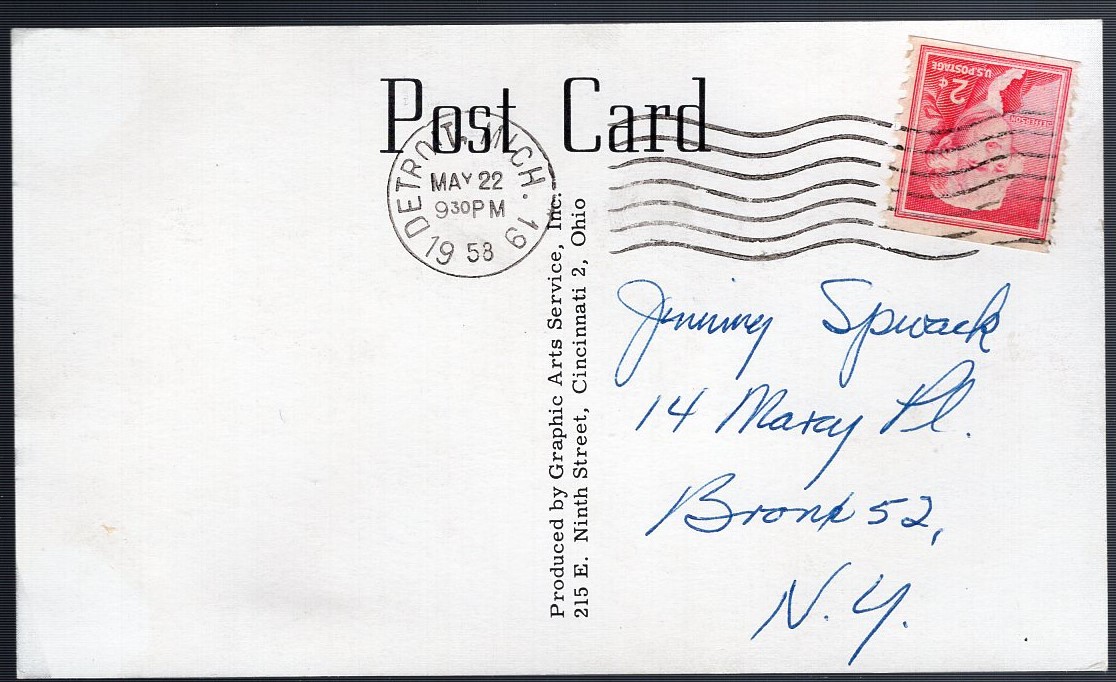 Post Card
DETROIT, MICH. 19
MAY 22
930PM
1958
U.S. POSTAGE
2¢
JEFFERSON
Produced by Graphic Arts Service, Inc.
215 E. Ninth Street, Cincinnati 2, Ohio
Jimmy Spwack
14 Marcy Pl.
Bronx 52,
N.Y.